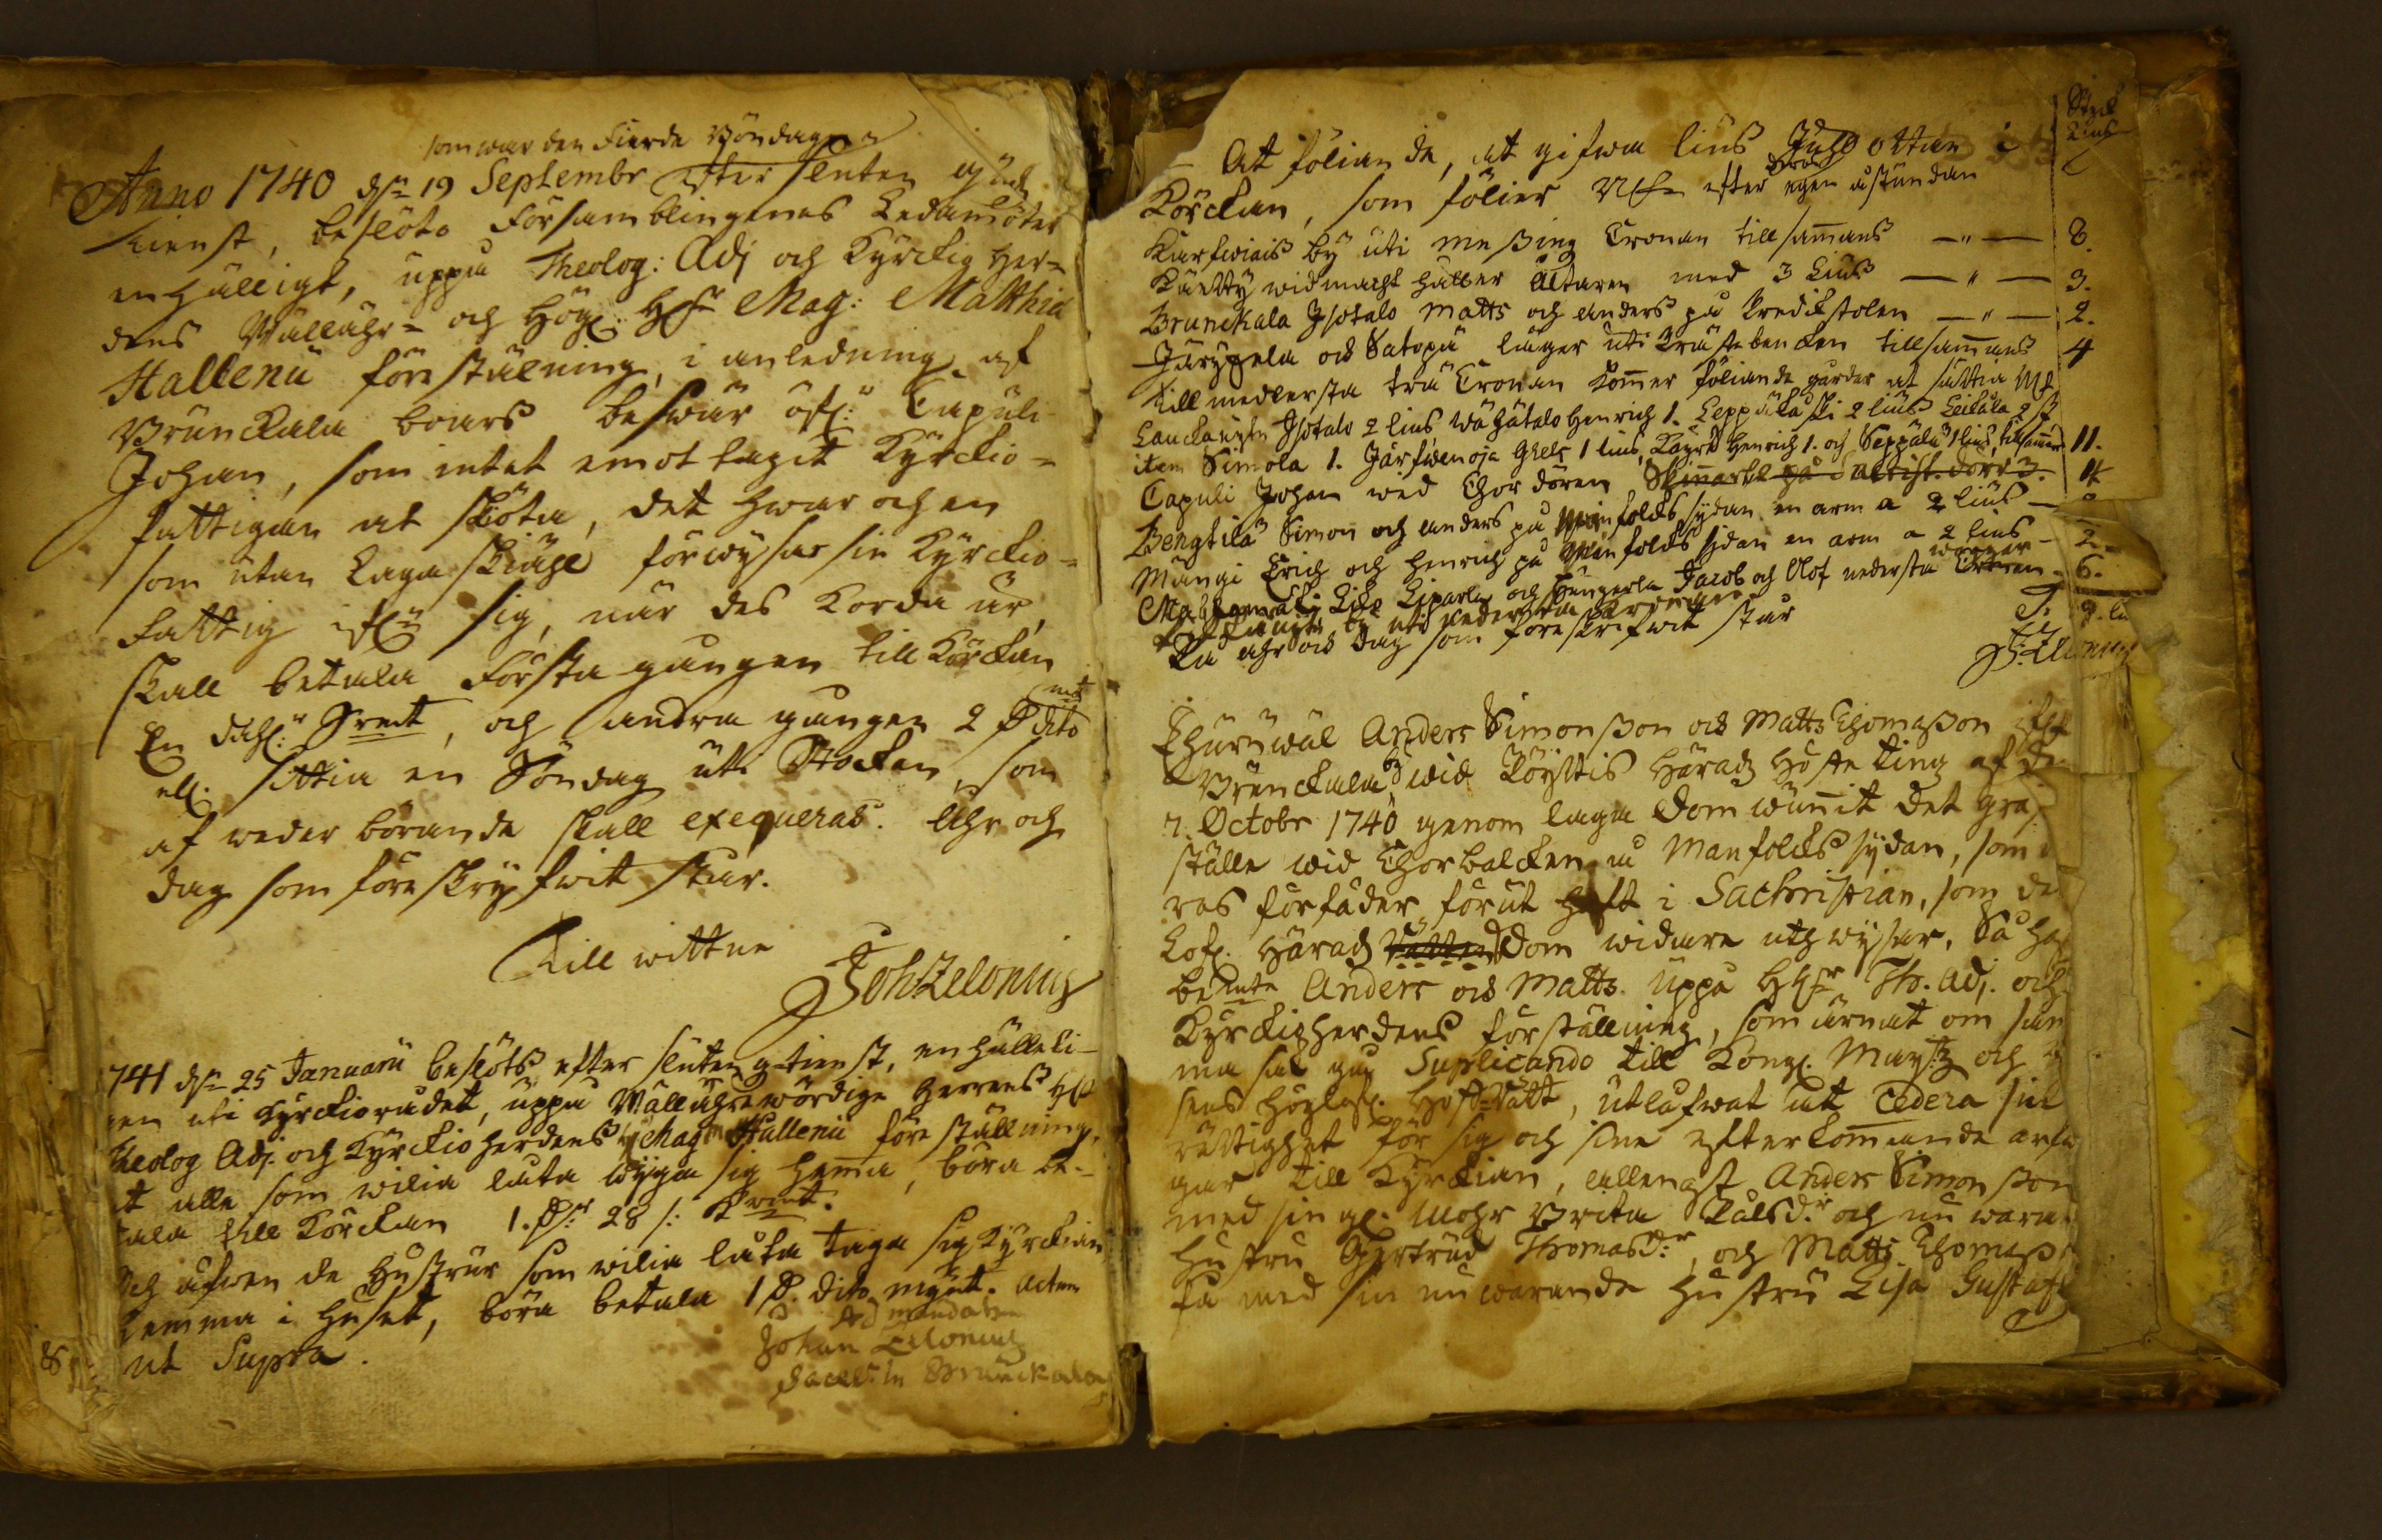 som war den Fierde Böndagen
Anno 1740 d. 19 Septembr efter sluten gudz
tienst, beslöto Församblingenes Ledamöter
enhälligt, uppå Theolog: Adj och Kyrckio Her-
dens Wälluhr- och Hög: H:r Mag: Matthiæ
Hallenii föreställning, i anledning af
Brunckala boers beswär öf: Capuli
Johan, som intet emottagit Kyrckio-
fattigan at sköta, det hwar och en
som utan Laga skiähl förwysar sin Kyrckio-
fattig ifrån sig, när des Korda är,
skall betala Första gången till Körckan
En dahl:r Srmt, och andra gången 2 D:r dito mt
ell. sittia en Söndag uti Stocken, som
af wederbörande skall exequeras. Åhr och
dag som föreskryfwit står.
Till wittne
Joh: Zelonius
1741 d. 25 Januarii beslöts efter sluten g-tienst, enhälleli-
gen uti Kyrckiorådet, uppå Wälluhrewördige Herrens H:r
Theolog Adj. och Kyrckioherdens Mag Hallenii föreställning,
at alla som wilia låta wyga sig hemma, böra be-
tala till Körckan 1. D:r 28 /: Kmt.
Och äfwen de Hustrur som wilia låta taga sig Kyrckian
hemma i Huset, böra betala 1 D. dito mynt. Actum
ut Supra.
Ad mandatum
Johan Zelonius
Sacell: in Brunckala
Styck
Lius
At föliande, at gifwa lius Julottan i
Körckan, som föllier Nfn efter deras egen åstundan
Kurfwiais by uti messing Cronan tillsamans — " — 8.
Käetty widmacht håller Altaren med 3 Lius — " — 3.
Brunckala Isotalo Matts och Anders på Predickstolen — " — 2.
Järypela och Satopä läger uti Prästebencken tillsammans 4
till medlersta trä Cronan Kommer föliande gårdar at sättia
Lauckauxen Isotalo 2 lius Wähätalo Henrich 1. Leppäkåski 2 lius Leikula 2 st
item Simola 1. Järfwenoja Ghels 1 lius, Käyrä Henrich 1. och Seppälä 1 lius, tilsammans 11.
Capuli Johan wed Chor dören 4
Bengtilä Simon och Anders på Manfolcks sydan en arm a 2 lius — 2
Mängi Erich och Henrich på Manfolcks sidan en arm a 2 lius — 2.
Liparla och Hungerla Jacob och Olof nedersta Cronan 6.
uti nedersta Cronan
På åhr och dag som föreskrifwit står
J: Zelonius
Ehuruwäl Anders Simonsson och Matts Thomasson ifrån
Brunckala by wid Löystis Härads Höste Ting af d.
7. Octobr 1740 genom laga Dom wunnit det graf
ställe wid Chorbalcken å Manfolcks sydan, som
ras förfäder förut haft i Sachristian, som de
Lof. Härads Dom widare utwysar, Så ha
bemte Anders och Matts uppå HH:r Th. Adj. och
Kyrckioherdens förställning, som ärnat om sam
ma sak gå Suplicando till Kongl. May:tz och
sens höglofl. HofRätt, utlåfwat att Cedera sin
rättighet för sig och sine efterkommande arfwin
gar till Kyrckian, allenast Anders Simonsson
med sin gl. Mohr Brita Påls d:r och nu waran
hustru Gertrud Thomas d:r, och Matts Thomass
få med sin nuwarande hustru Lisa Gustafs